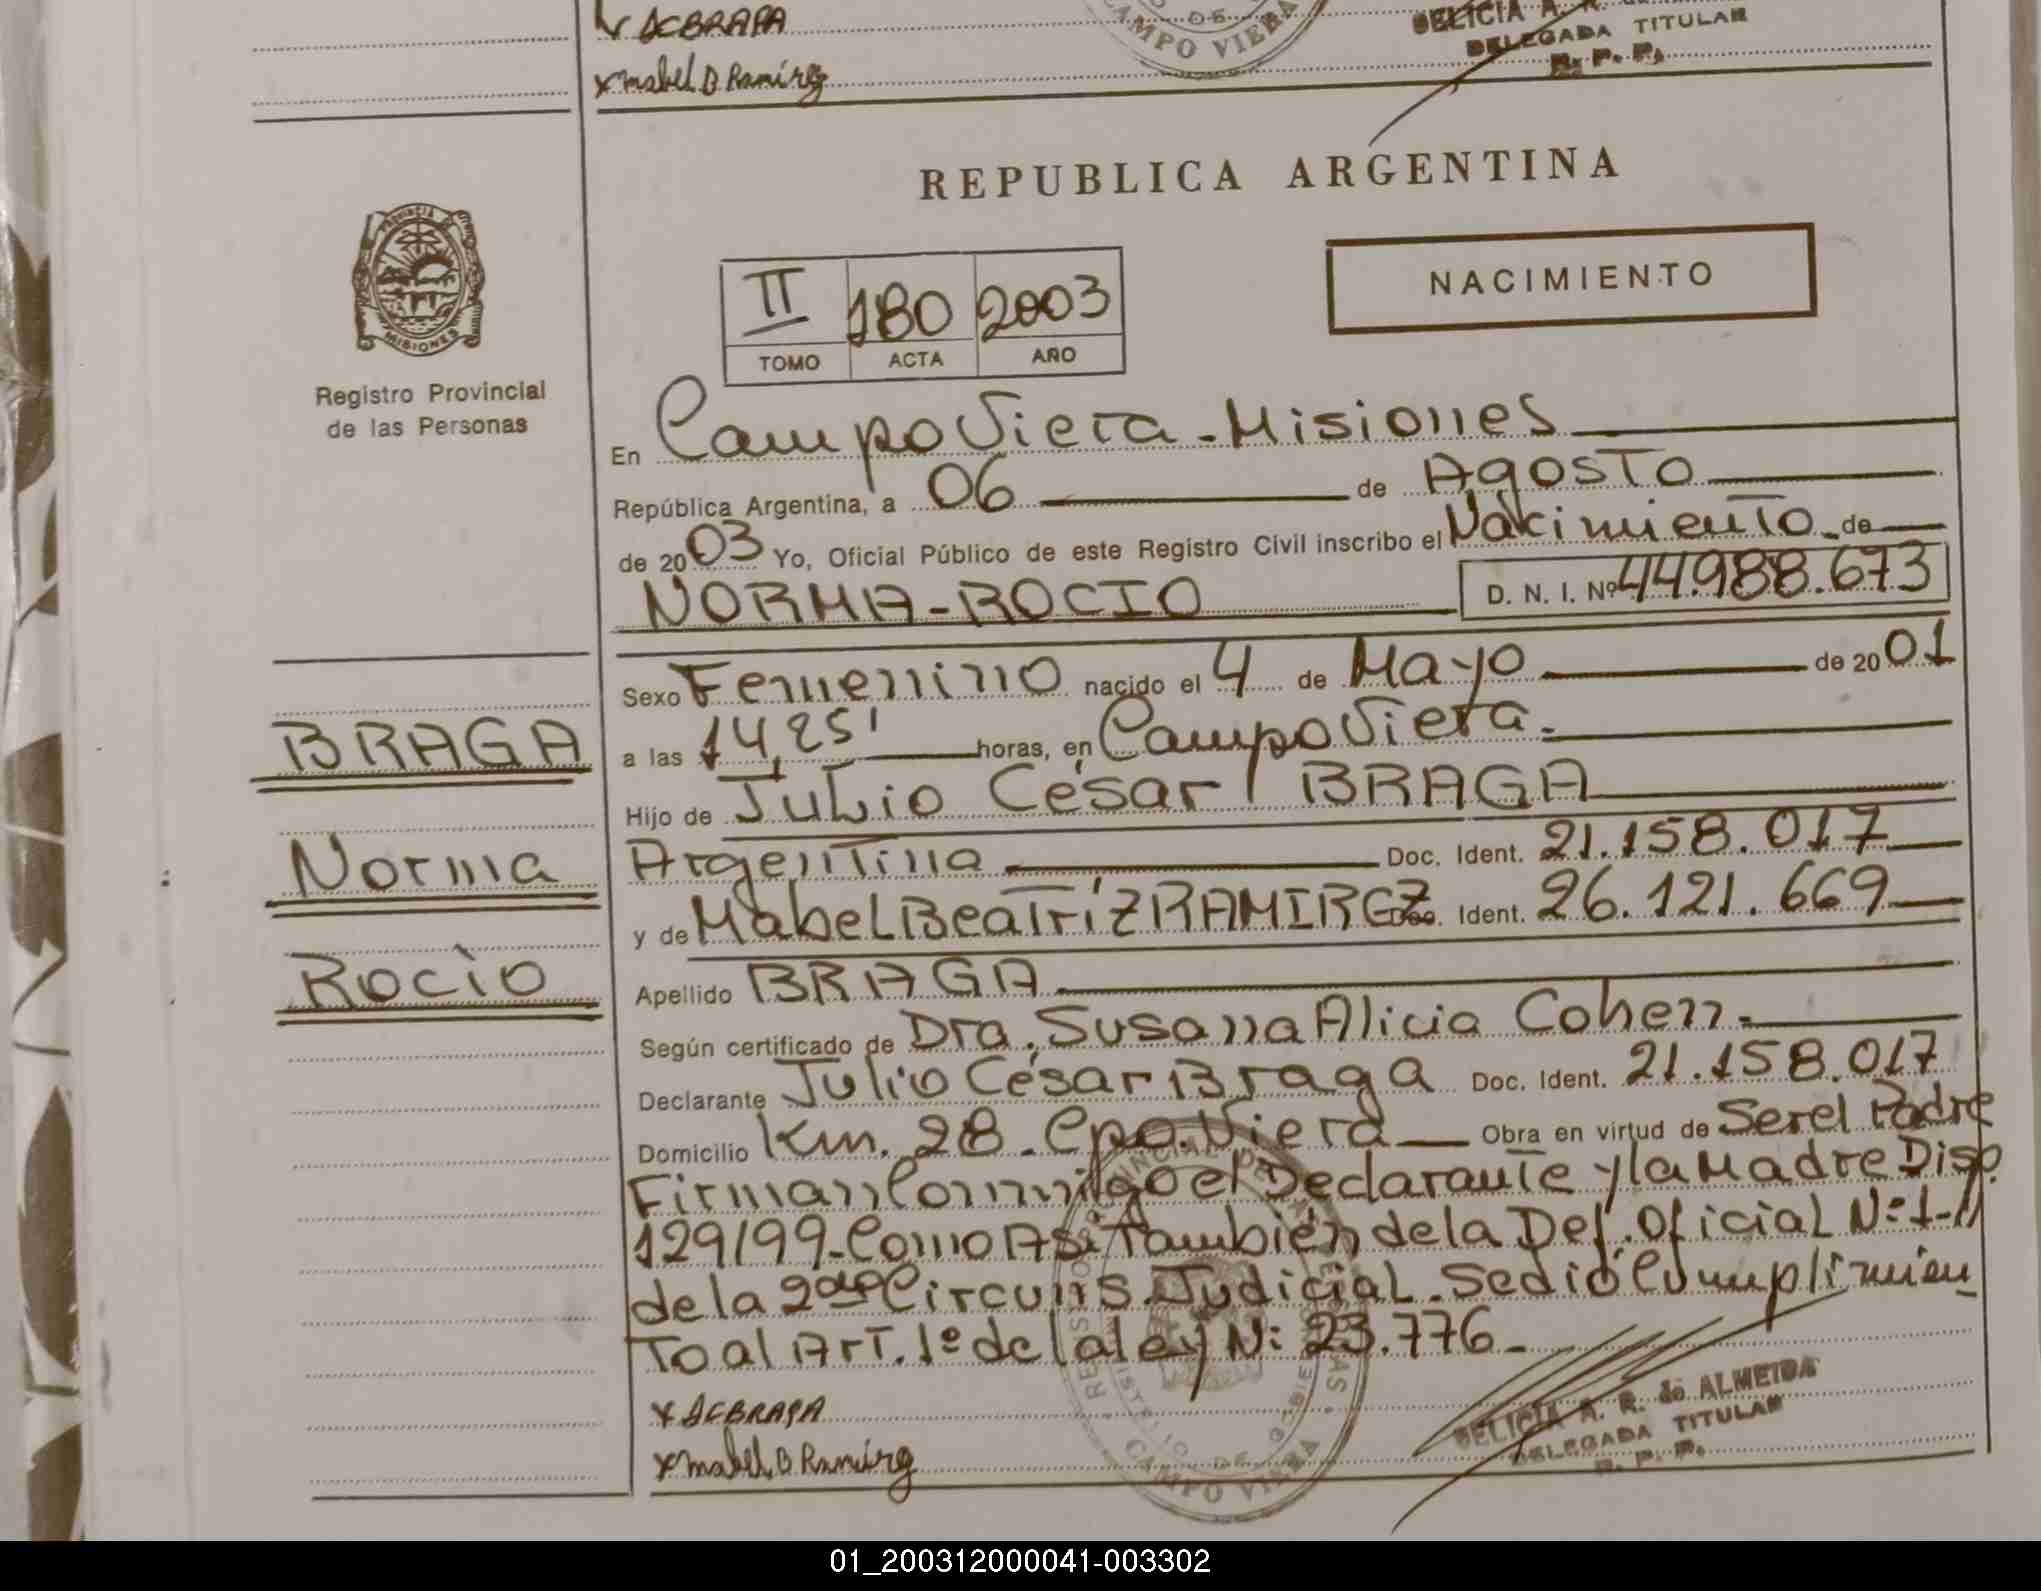 ACBRAGA
x Mabel B Ramírez
DE
CAMPO VIERA
DELICIA A. R.
DELEGADA TITULAR
R. P. P.
REPUBLICA ARGENTINA
PROVINCIA DE
MISIONES
Registro Provincial
de las Personas
NACIMIENTO
II 180 2003
TOMO ACTA AÑO
En Campo Viera - Misiones
República Argentina, a 06 de Agosto
de 2003 Yo, Oficial Público de este Registro Civil inscribo el Nacimiento de
NORMA-ROCIO D. N. I. Nº 44.988.673
Sexo Femenino nacido el 4 de Mayo de 2001
BRAGA
a las 14,25' horas, en Campo Viera.
Hijo de Julio César BRAGA
Norma
Argentina Doc. Ident. 21.158.017
y de Mabel Beatríz RAMIREZ Doc. Ident. 26.121.669
Rocio
Apellido BRAGA
Según certificado de Dra. Susana Alicia Cohen.
Declarante Julio César Braga Doc. Ident. 21.158.017
Domicilio Km. 28 - Cpo. Viera Obra en virtud de Ser el Padre
Firman Conmigo el Declarante y la Madre Disp.
129/99-Como Asi También de la Def. Oficial Nº 1-
de la 2da Circuns. Judicial. Se dió Cumplimien
To al ArT. 1º de la ley N: 23.776-
x ACBRAGA
x Mabel B Ramírez
CAMPO VIERA
DELICIA A. R. de ALMEIDA
DELEGADA TITULAR
R. P. P.
01_200312000041-003302